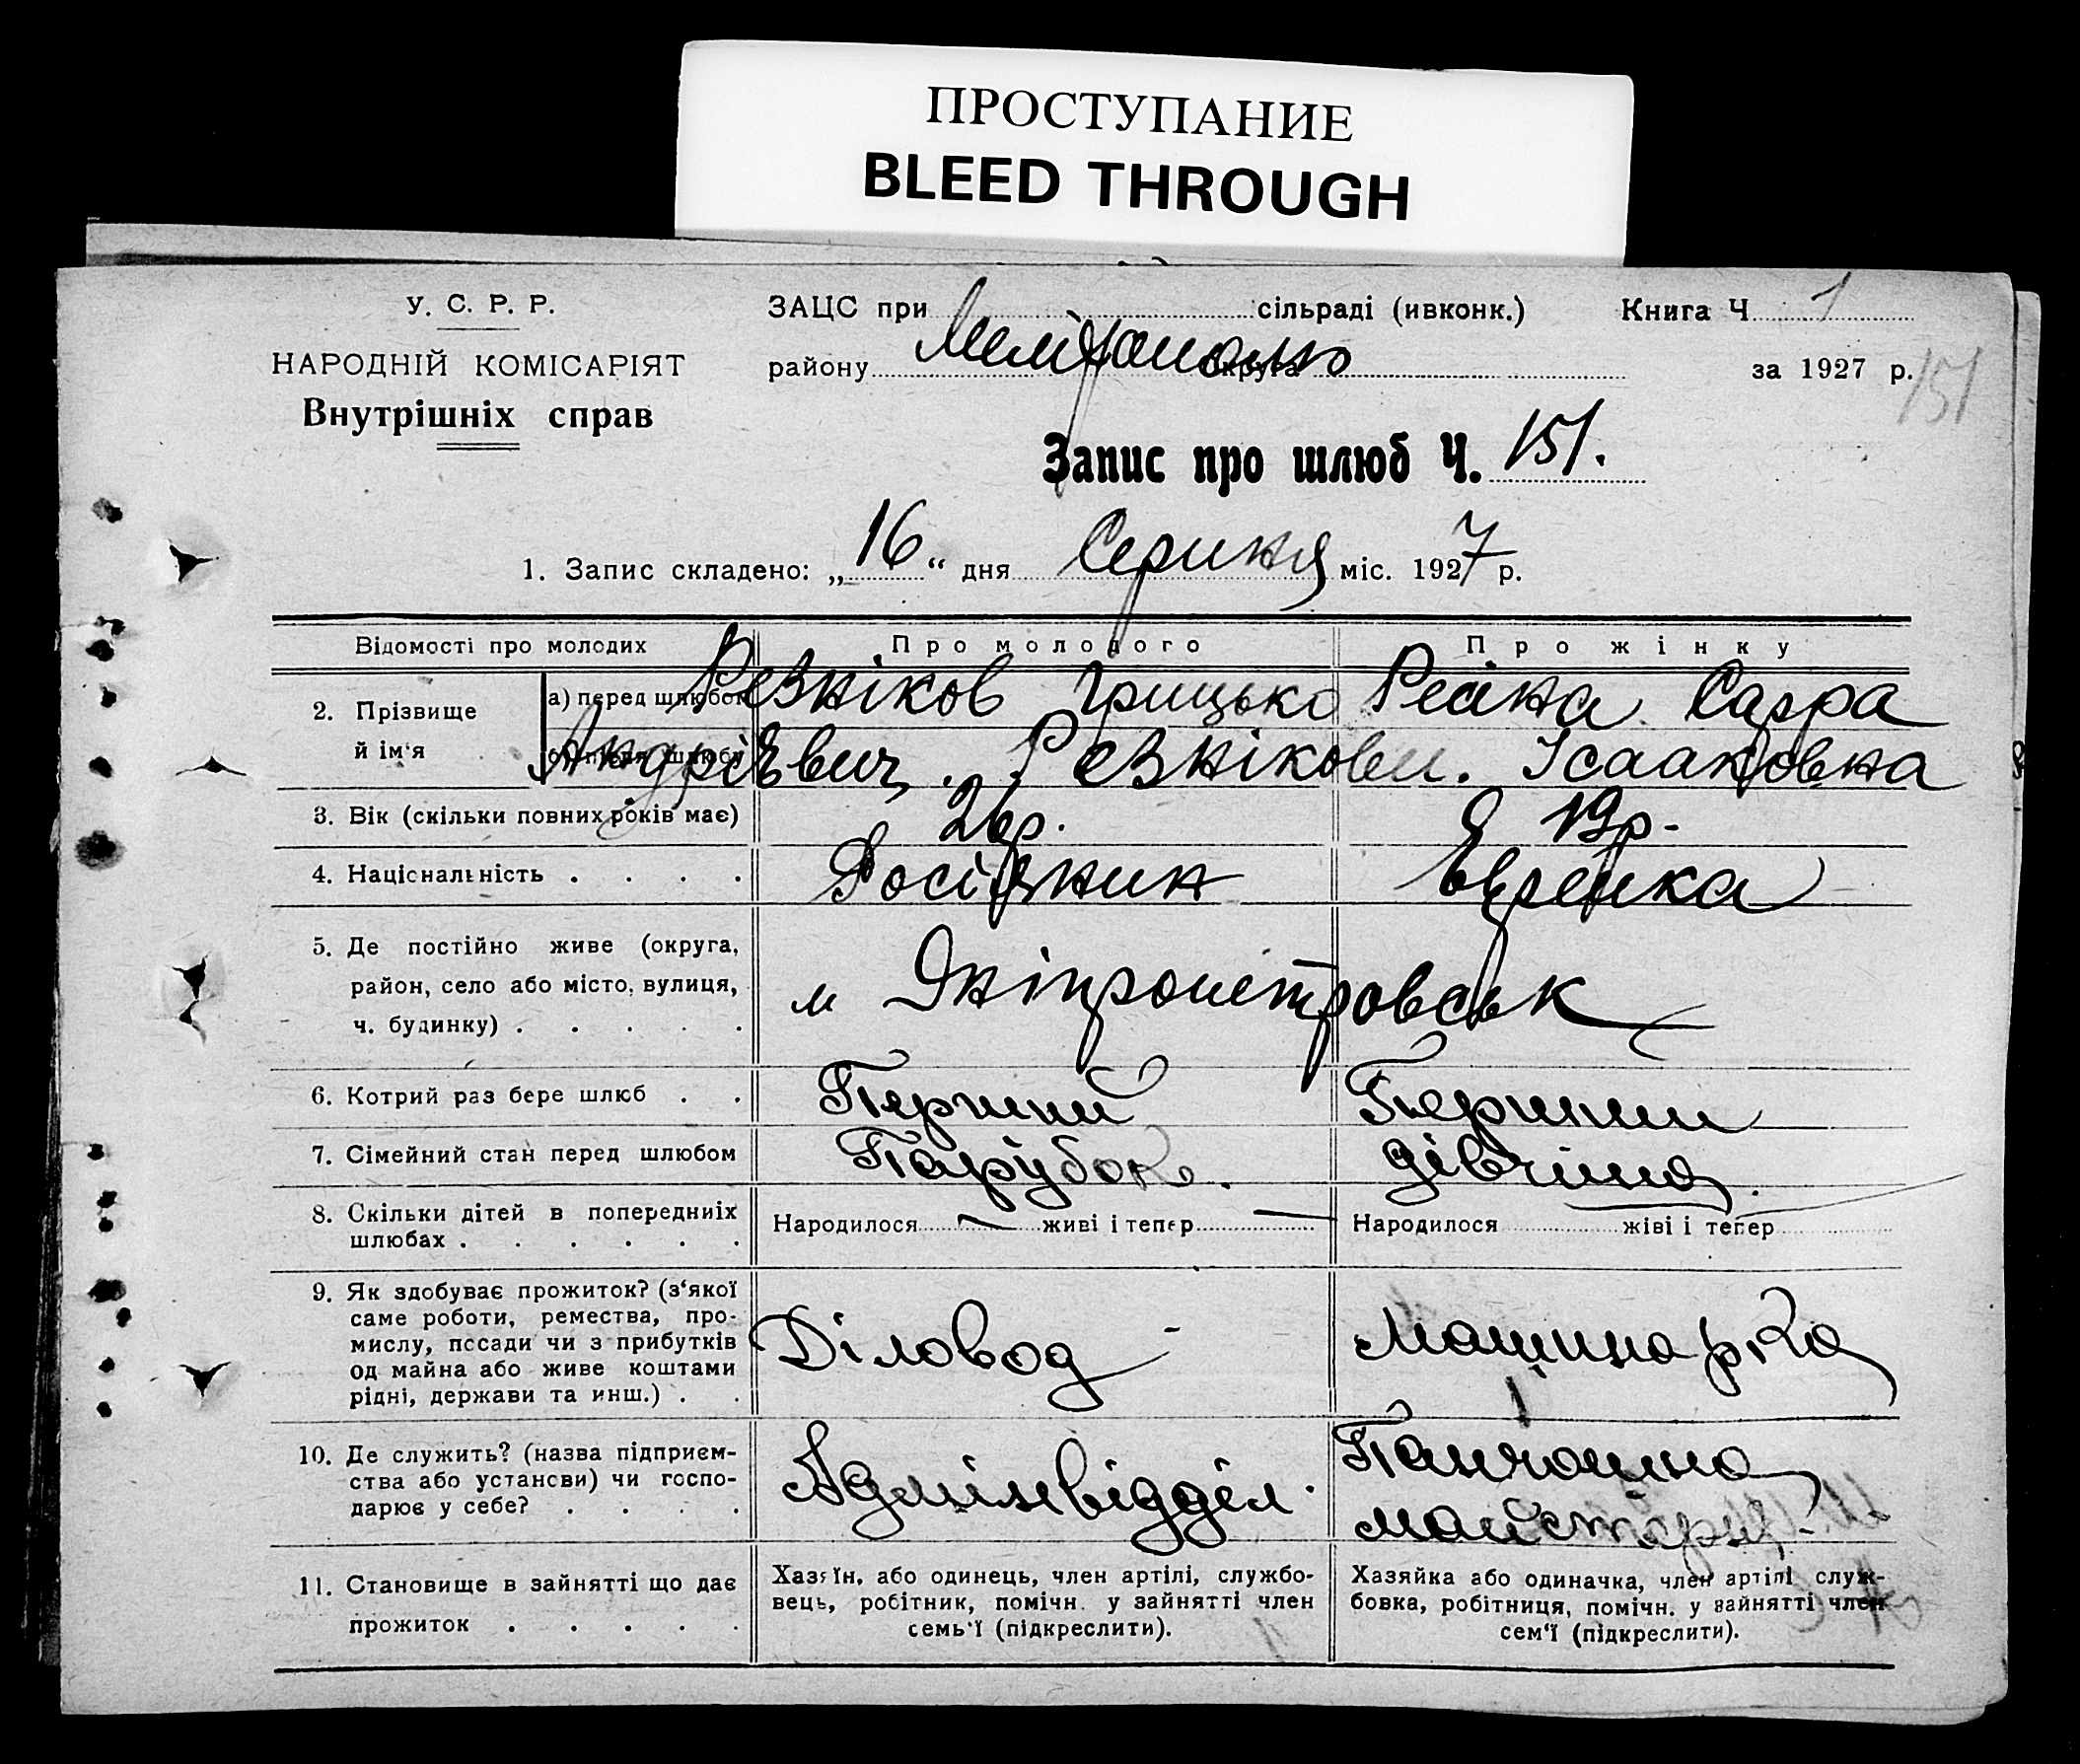 ПРОСТУПАНИЕ
BLEED THROUGH
У. С. Р. Р.
НАРОДНІЙ КОМІСАРІЯТ
Внутрішніх справ
ЗАЦС при сільраді (ивконк.)
району Мелітополю округа
Книга Ч 1
за 1927 р.
151
Запис про шлюб Ч. 151.
1. Запис складено: „16“ дня Серпня міс. 1927 р.
Відомості про молодих Про молодого Про жінку
2. Прізвище й ім‘я
а) перед шлюбом Резніков Грицько Рейна Сарра
б) після шлюбу Андріївич. Резнікови. Ісааковна
3. Вік (скільки повних років має) 26р. 19р-
4. Національність . . . . Росіянин Еврейка
5. Де постійно живе (округа,
район, село або місто, вулиця,
ч. будинку) . . . . .
м Дніпропетровськ
6. Котрий раз бере шлюб . . Перший Перший
7. Сімейний стан перед шлюбом Парубок. дівчина.
8. Скільки дітей в попередниіх
шлюбах . . . . . .
Народилося — живі і тепер — Народилося жіві і тепер
9. Як здобуває прожиток? (з‘якої
саме роботи, ремества, про-
мислу, посади чи з прибутків
од майна або живе коштами
рідні, держави та инш.) . .
Діловод - Машинарка
10. Де служить? (назва підприєм-
ства або устансви) чи госпо-
дарює у себе? . . . .
Адмінвідділ. Панчошна
майстерня-
11. Становище в зайнятті що дає
прожиток . . . . .
Хазяїн, або одинець, член артілі, службо-
вець, робітник, помічн. у зайнятті член
семь‘ї (підкреслити).
Хазяйка або одиначка, член артілі служ-
бовка, робітниця, помічн. у зайнятті член
сем‘ї (підкреслити).